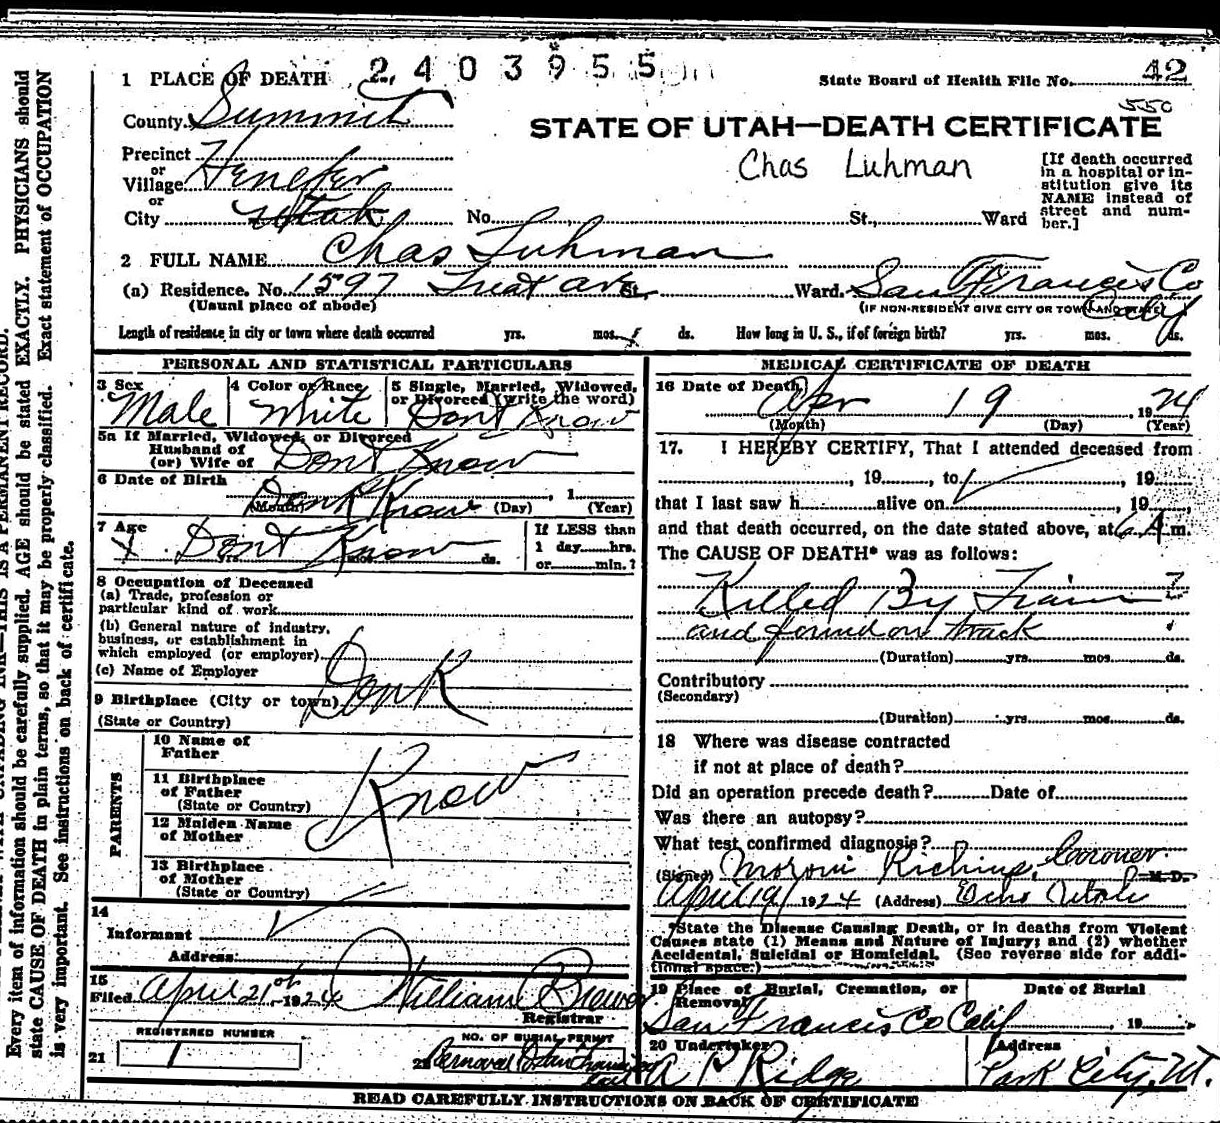 2403955
1 PLACE OF DEATH
State Board of Health File No. 42
550
County Summit
STATE OF UTAH—DEATH CERTIFICATE
Chas Luhman
Precinct
or
Village Henefer
or
City Utah No. St., Ward
[If death occurred
in a hospital or in-
stitution give its
NAME instead of
street and num-
ber.]
2 FULL NAME Chas Luhman
(a) Residence. No. 1597 Treat ave St. Ward. San Francis Co
(Usual place of abode)
(IF NON-RESIDENT GIVE CITY OR TOWN AND STATE) Calif
Length of residence in city or town where death occurred yrs. mos. ds. How long in U. S., if of foreign birth? yrs. mos. ds.
PERSONAL AND STATISTICAL PARTICULARS
3 Sex
Male
4 Color or Race
White
5 Single, Married, Widowed,
or Divorced (write the word)
Dont Know
5a If Married, Widowed, or Divorced
Husband of
(or) Wife of Dont Know
6 Date of Birth
Dont Know , 1
(Month) (Day) (Year)
7 Age
Dont Know
yrs. mos. ds.
If LESS than
1 day hrs.
or min.?
8 Occupation of Deceased
(a) Trade, profession or
particular kind of work
(b) General nature of industry,
business, or establishment in
which employed (or employer)
(c) Name of Employer
9 Birthplace (City or town)
(State or Country)
Dont
PARENTS
10 Name of
Father
11 Birthplace
of Father
(State or Country)
Know
12 Maiden Name
of Mother
13 Birthplace
of Mother
(State or Country)
14
Informant
Address:
15
Filed April 21st 1924 William Brewer
Registrar
REGISTERED NUMBER
21 1
NO. OF BURIAL PERMIT
22 Removal
MEDICAL CERTIFICATE OF DEATH
16 Date of Death
Apr 19 , 1924
(Month) (Day) (Year)
17. I HEREBY CERTIFY, That I attended deceased from
, 19 , to , 19
that I last saw h alive on , 19
and that death occurred, on the date stated above, at 6 A m.
The CAUSE OF DEATH* was as follows:
Killed By Train
and found on track
(Duration) yrs. mos. ds.
Contributory
(Secondary)
(Duration) yrs. mos. ds.
18 Where was disease contracted
if not at place of death?
Did an operation precede death? Date of
Was there an autopsy?
What test confirmed diagnosis?
(Signed) Moroni Richins, Coroner. M. D.
April 19/ 1924 (Address) Echo Utah
*State the Disease Causing Death, or in deaths from Violent
Causes state (1) Means and Nature of Injury; and (2) whether
Accidental, Suicidal or Homicidal. (See reverse side for addi-
tional space.)
19 Place of Burial, Cremation, or
Removal
San Francis Co Calif
Date of Burial
, 19
20 Undertaker
A P Ridge
Address
Park City, Ut.
READ CAREFULLY INSTRUCTIONS ON BACK OF CERTIFICATE
THIS IS A PERMANENT RECORD.
Every item of information should be carefully supplied. AGE should be stated EXACTLY. PHYSICIANS should
state CAUSE OF DEATH in plain terms, so that it may be properly classified. Exact statement of OCCUPATION
is very important. See instructions on back of certificate.